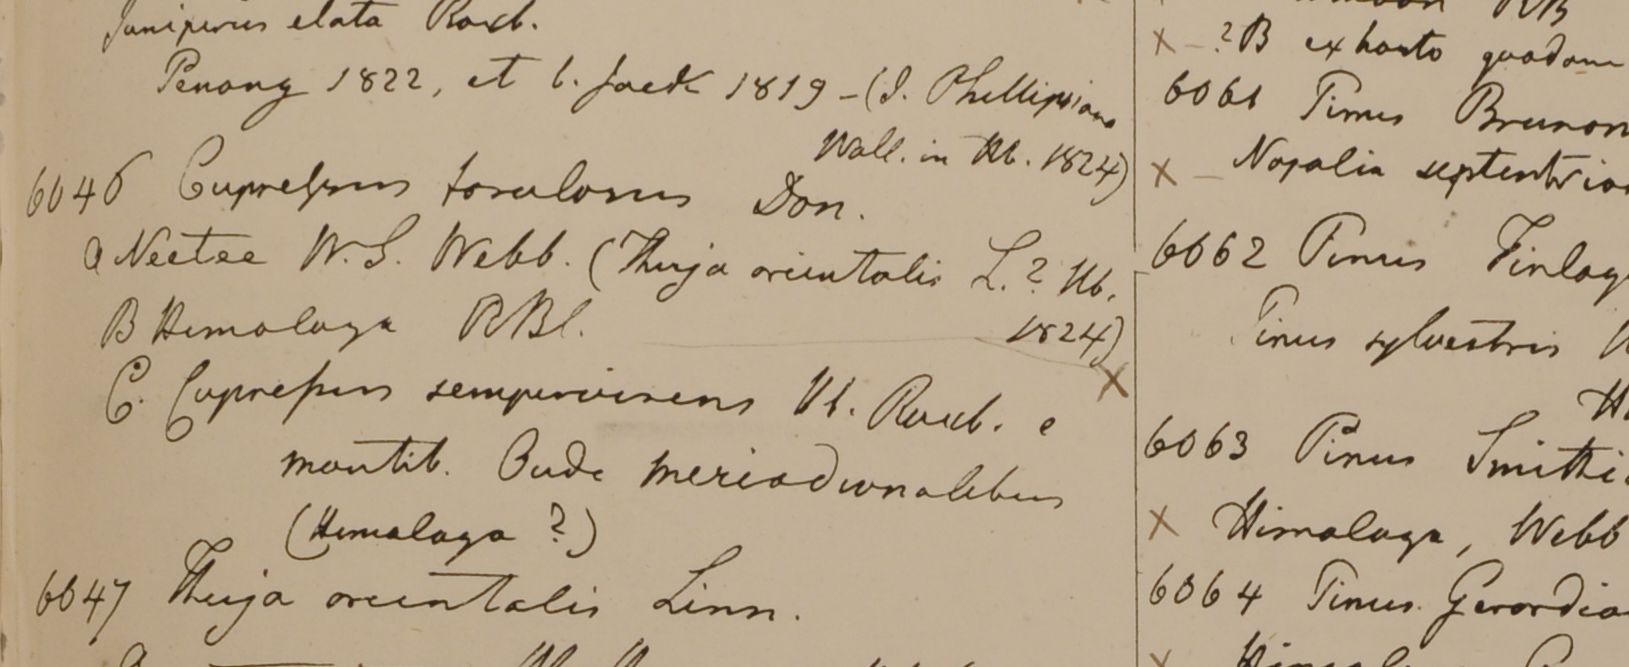 Juniperus elata Roxb.
Penang 1822, et b. Jack 1819 - (J. Phillipsiana
Wall. in Hb. 1824)
6046 Cupressus torulosus Don.
a Neetee W.S. Webb. (Thuja orientalis L.? Hb.
B Himalaya RBl. 1824)
C. Cupressus sempervirens Hb. Roxb. e
montib. Oude meriodionalibus
(Himalaya ?)
6047 Thuja orientalis Linn.
? B ex horto quodam
6061 Pinus Brunon
Napalia septentrion
6062 Pinus Finlay
Pinus sylvestris
6063 Pinus Smithi
Himalaya, Webb
6064 Pinus Gerardia